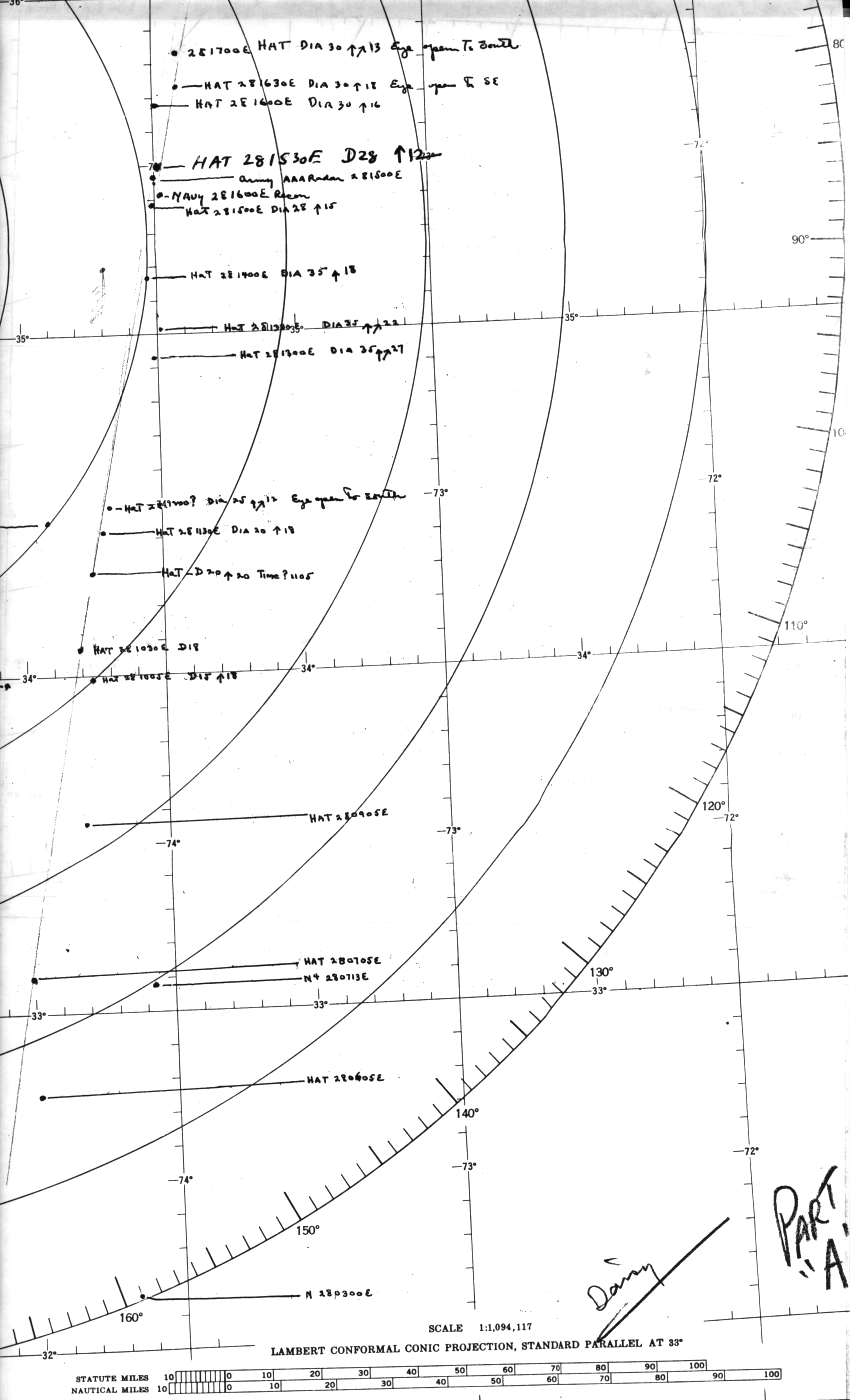 36°
281700E HAT DIA 30 ↑↗13 Eye open To South
80
HAT 281630E DIA 30 ↑18 Eye open To SE
HAT 281600E DIA 30 ↑16
72°
HAT 281530E D28 ↑12
Army AAA Radar 281500E
NAVY 281600E Recon
HAT 281500E DIA 28 ↑15
90°
HAT 281400E DIA 35 ↑18
35°
HAT 281330E DIA 35 ↑↗22
35°
35°
HAT 281300E DIA 35 ↑↗27
10
72°
73°
HAT 281200? DIA 25 ↑↗12 Eye open To South
HAT 281130E DIA 20 ↑18
HAT D20 ↑20 Time? 1105
110°
HAT 281030E D18
34°
34°
34°
HAT 281005E D15 ↑18
120°
72°
HAT 280905E
73°
74°
HAT 280705E
130°
N4 280713E
33°
33°
33°
HAT 280605E
140°
72°
73°
74°
PART
"A"
150°
Daisy
N 280300E
160°
SCALE 1:1,094,117
32°
LAMBERT CONFORMAL CONIC PROJECTION, STANDARD PARALLEL AT 33°
STATUTE MILES 10 0 10 20 30 40 50 60 70 80 90 100
NAUTICAL MILES 10 0 10 20 30 40 50 60 70 80 90 100